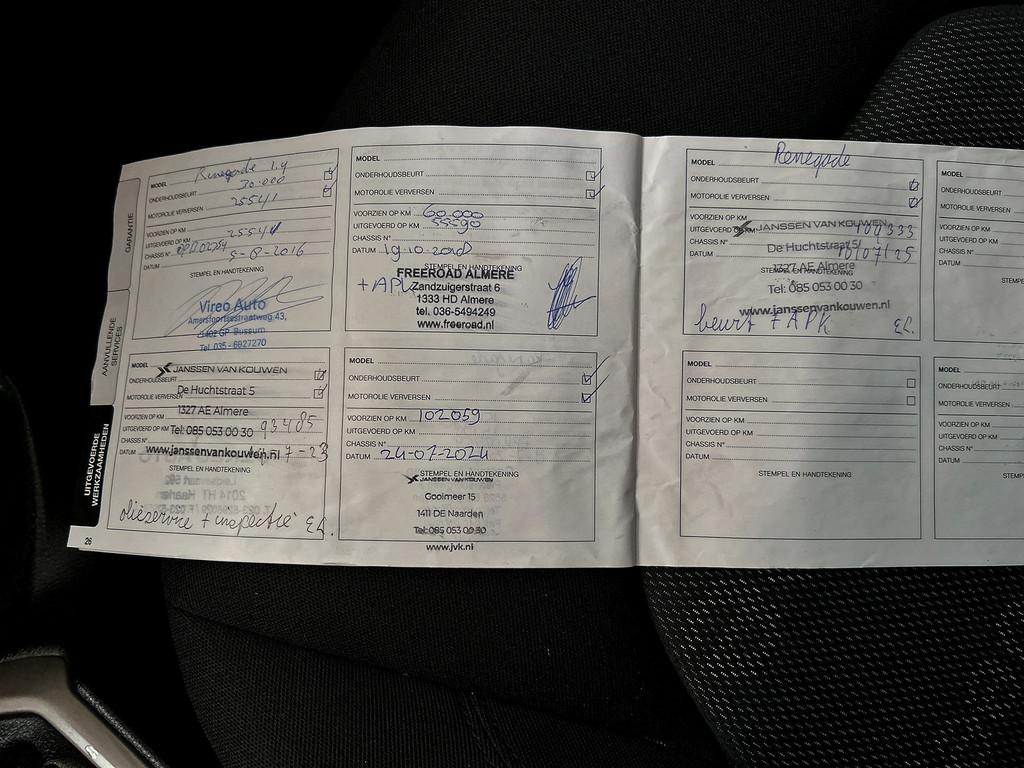 GARANTIE
AANVULLENDE
SERVICES
UITGEVOERDE
WERKZAAMHEDEN
26
MODEL Renegade 1.4
ONDERHOUDSBEURT 30.000
MOTOROLIE VERVERSEN 25541
VOORZIEN OP KM
UITGEVOERD OP KM 25541
CHASSIS N°
DATUM 5-8-2016
STEMPEL EN HANDTEKENING
Vireo Auto
Amersfoortsestraatweg 43,
1402 GP Bussum
Tel. 035-6927270
MODEL
ONDERHOUDSBEURT
MOTOROLIE VERVERSEN
VOORZIEN OP KM 60.000
UITGEVOERD OP KM 55590
CHASSIS N°
DATUM 19-10-2018
STEMPEL EN HANDTEKENING
FREEROAD ALMERE
+ APK
Zandzuigerstraat 6
1333 HD Almere
tel. 036-5494249
www.freeroad.nl
MODEL JANSSEN VAN KOUWEN
ONDERHOUDSBEURT
De Huchtstraat 5
MOTOROLIE VERVERSEN
1327 AE Almere
VOORZIEN OP KM
UITGEVOERD OP KM Tel: 085 053 00 30 93485
CHASSIS N°
DATUM www.janssenvankouwen.nl 7-23
STEMPEL EN HANDTEKENING
olieservice + inspectie
MODEL
ONDERHOUDSBEURT
MOTOROLIE VERVERSEN
VOORZIEN OP KM 102059
UITGEVOERD OP KM
CHASSIS N°
DATUM 24-07-2024
STEMPEL EN HANDTEKENING
JANSSEN VAN KOUWEN
Gooimeer 15
1411 DE Naarden
Tel: 085 053 00 30
www.jvk.nl
MODEL Renegade
ONDERHOUDSBEURT
MOTOROLIE VERVERSEN
VOORZIEN OP KM
UITGEVOERD OP KM JANSSEN VAN KOUWEN
CHASSIS N° De Huchtstraat 5
DATUM 10/07/25
1327 AE Almere
STEMPEL EN HANDTEKENING
Tel: 085 053 00 30
www.janssenvankouwen.nl
beurt + APK
MODEL
ONDERHOUDSBEURT
MOTOROLIE VERVERSEN
VOORZIEN OP KM
UITGEVOERD OP KM
CHASSIS N°
DATUM
STEMPEL EN HANDTEKENING
MODEL
ONDERHOUDSBEURT
MOTOROLIE VERVERSEN
VOORZIEN OP KM
UITGEVOERD OP KM
CHASSIS N°
DATUM
MODEL
ONDERHOUDSBEURT
MOTOROLIE VERVERSEN
VOORZIEN OP KM
UITGEVOERD OP KM
CHASSIS N°
DATUM